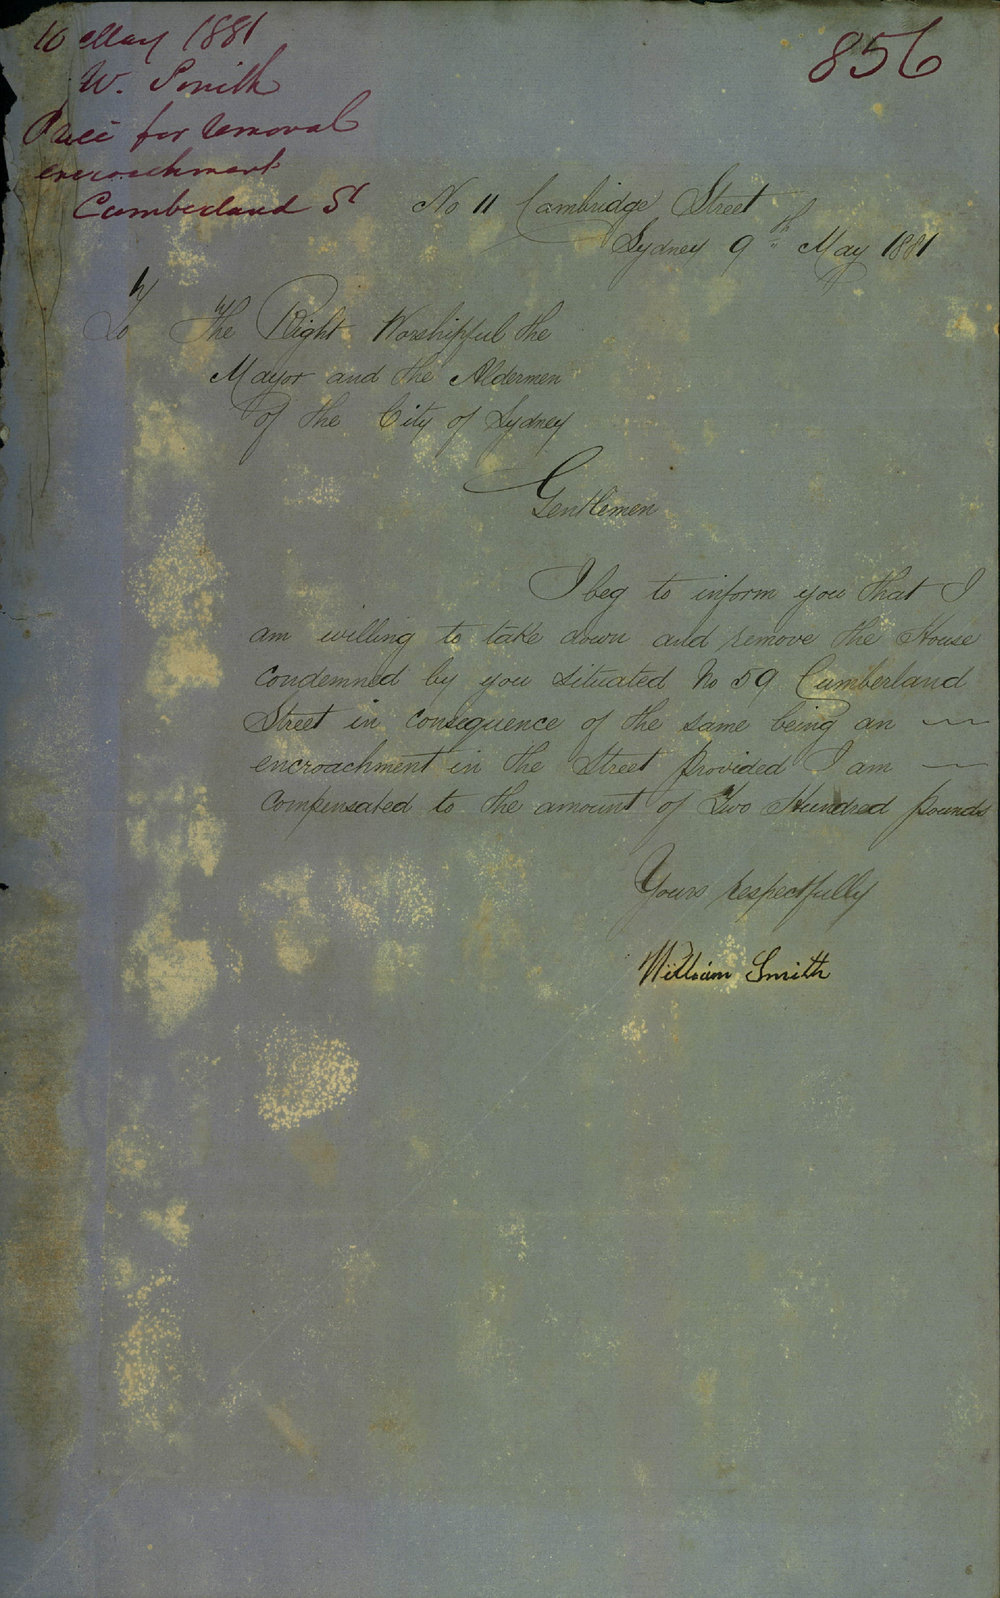 10 May 1881
W. Smith
Price for removal
encroachment
Cumberland St
856
No 11 Cambridge Street
Sydney 9th May 1881
To The Right Worshipful the
Mayor and the Aldermen
of the City of Sydney
Gentlemen
I beg to inform you that I
am willing to take down and remove the House
condemned by you situated No 59 Cumberland
Street in consequence of the same being an
encroachment in the Street provided I am
compensated to the amount of Two Hundred pounds
Yours respectfully
William Smith